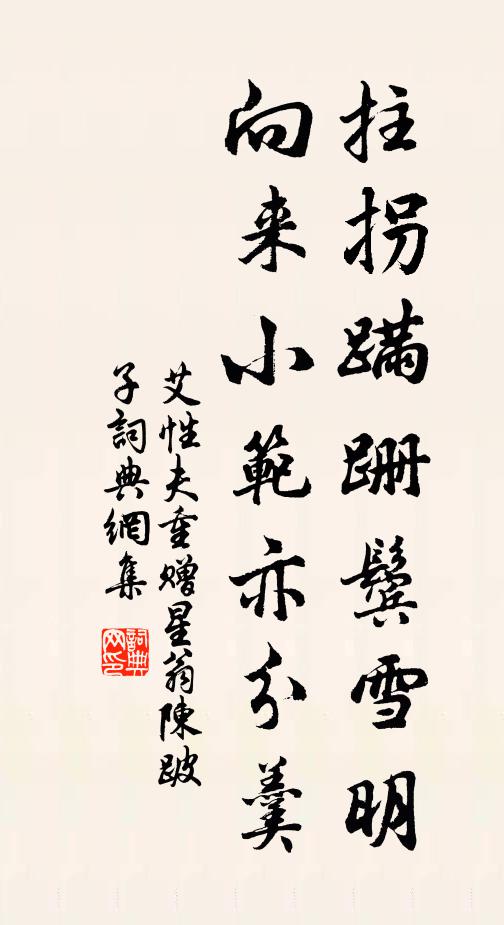 拄拐蹣跚鬓雪明
向来小範亦分羹
艾性夫重赠星翁陳跛
子詞典網集
詞典网印